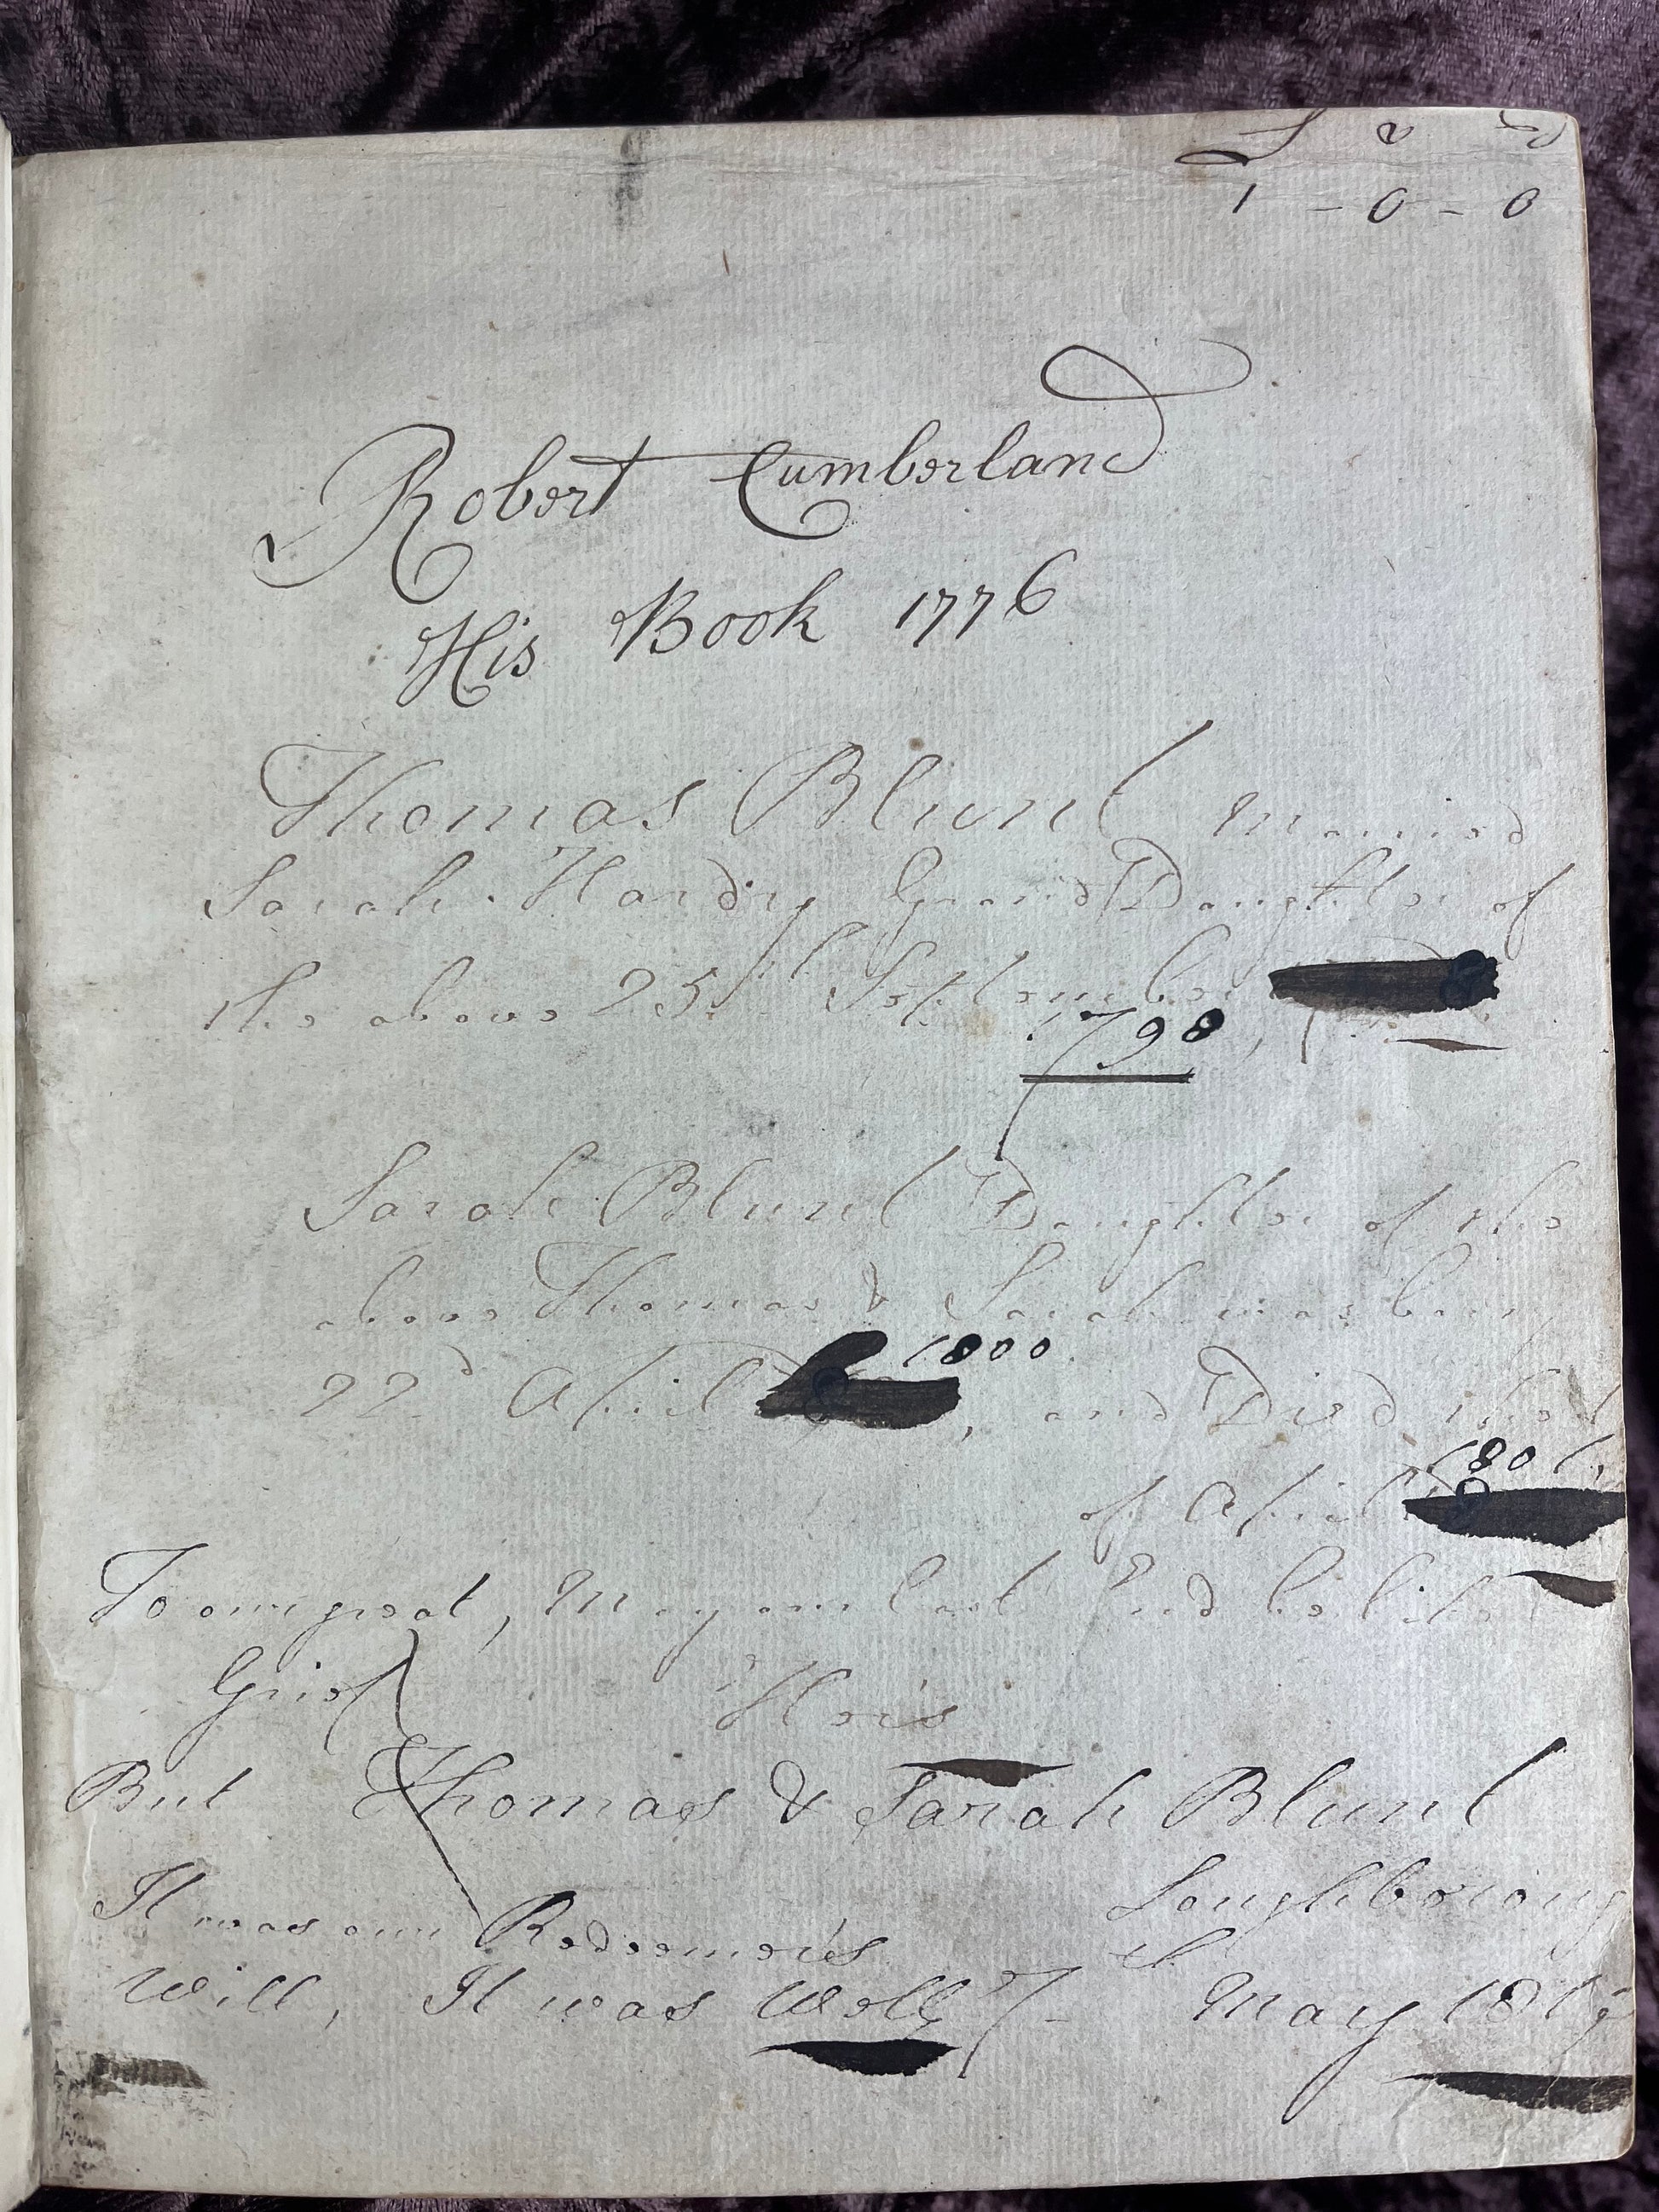 £ s d
1 - 0 - 0
Robert Cumberland
His Book 1776
Thomas Blunt Married
Sarah Hardy Grand Daughter of
the above 25th September
1798,
Sarah Blunt Daughter of the
above Thomas & Sarah was born
1800
22d April, and Died the
1801,
of April
To our great, May our last End be like
Grief Her's
But Thomas & Sarah Blunt
It was our Redeemer's Loughboroug
Will, It was Well h May 181